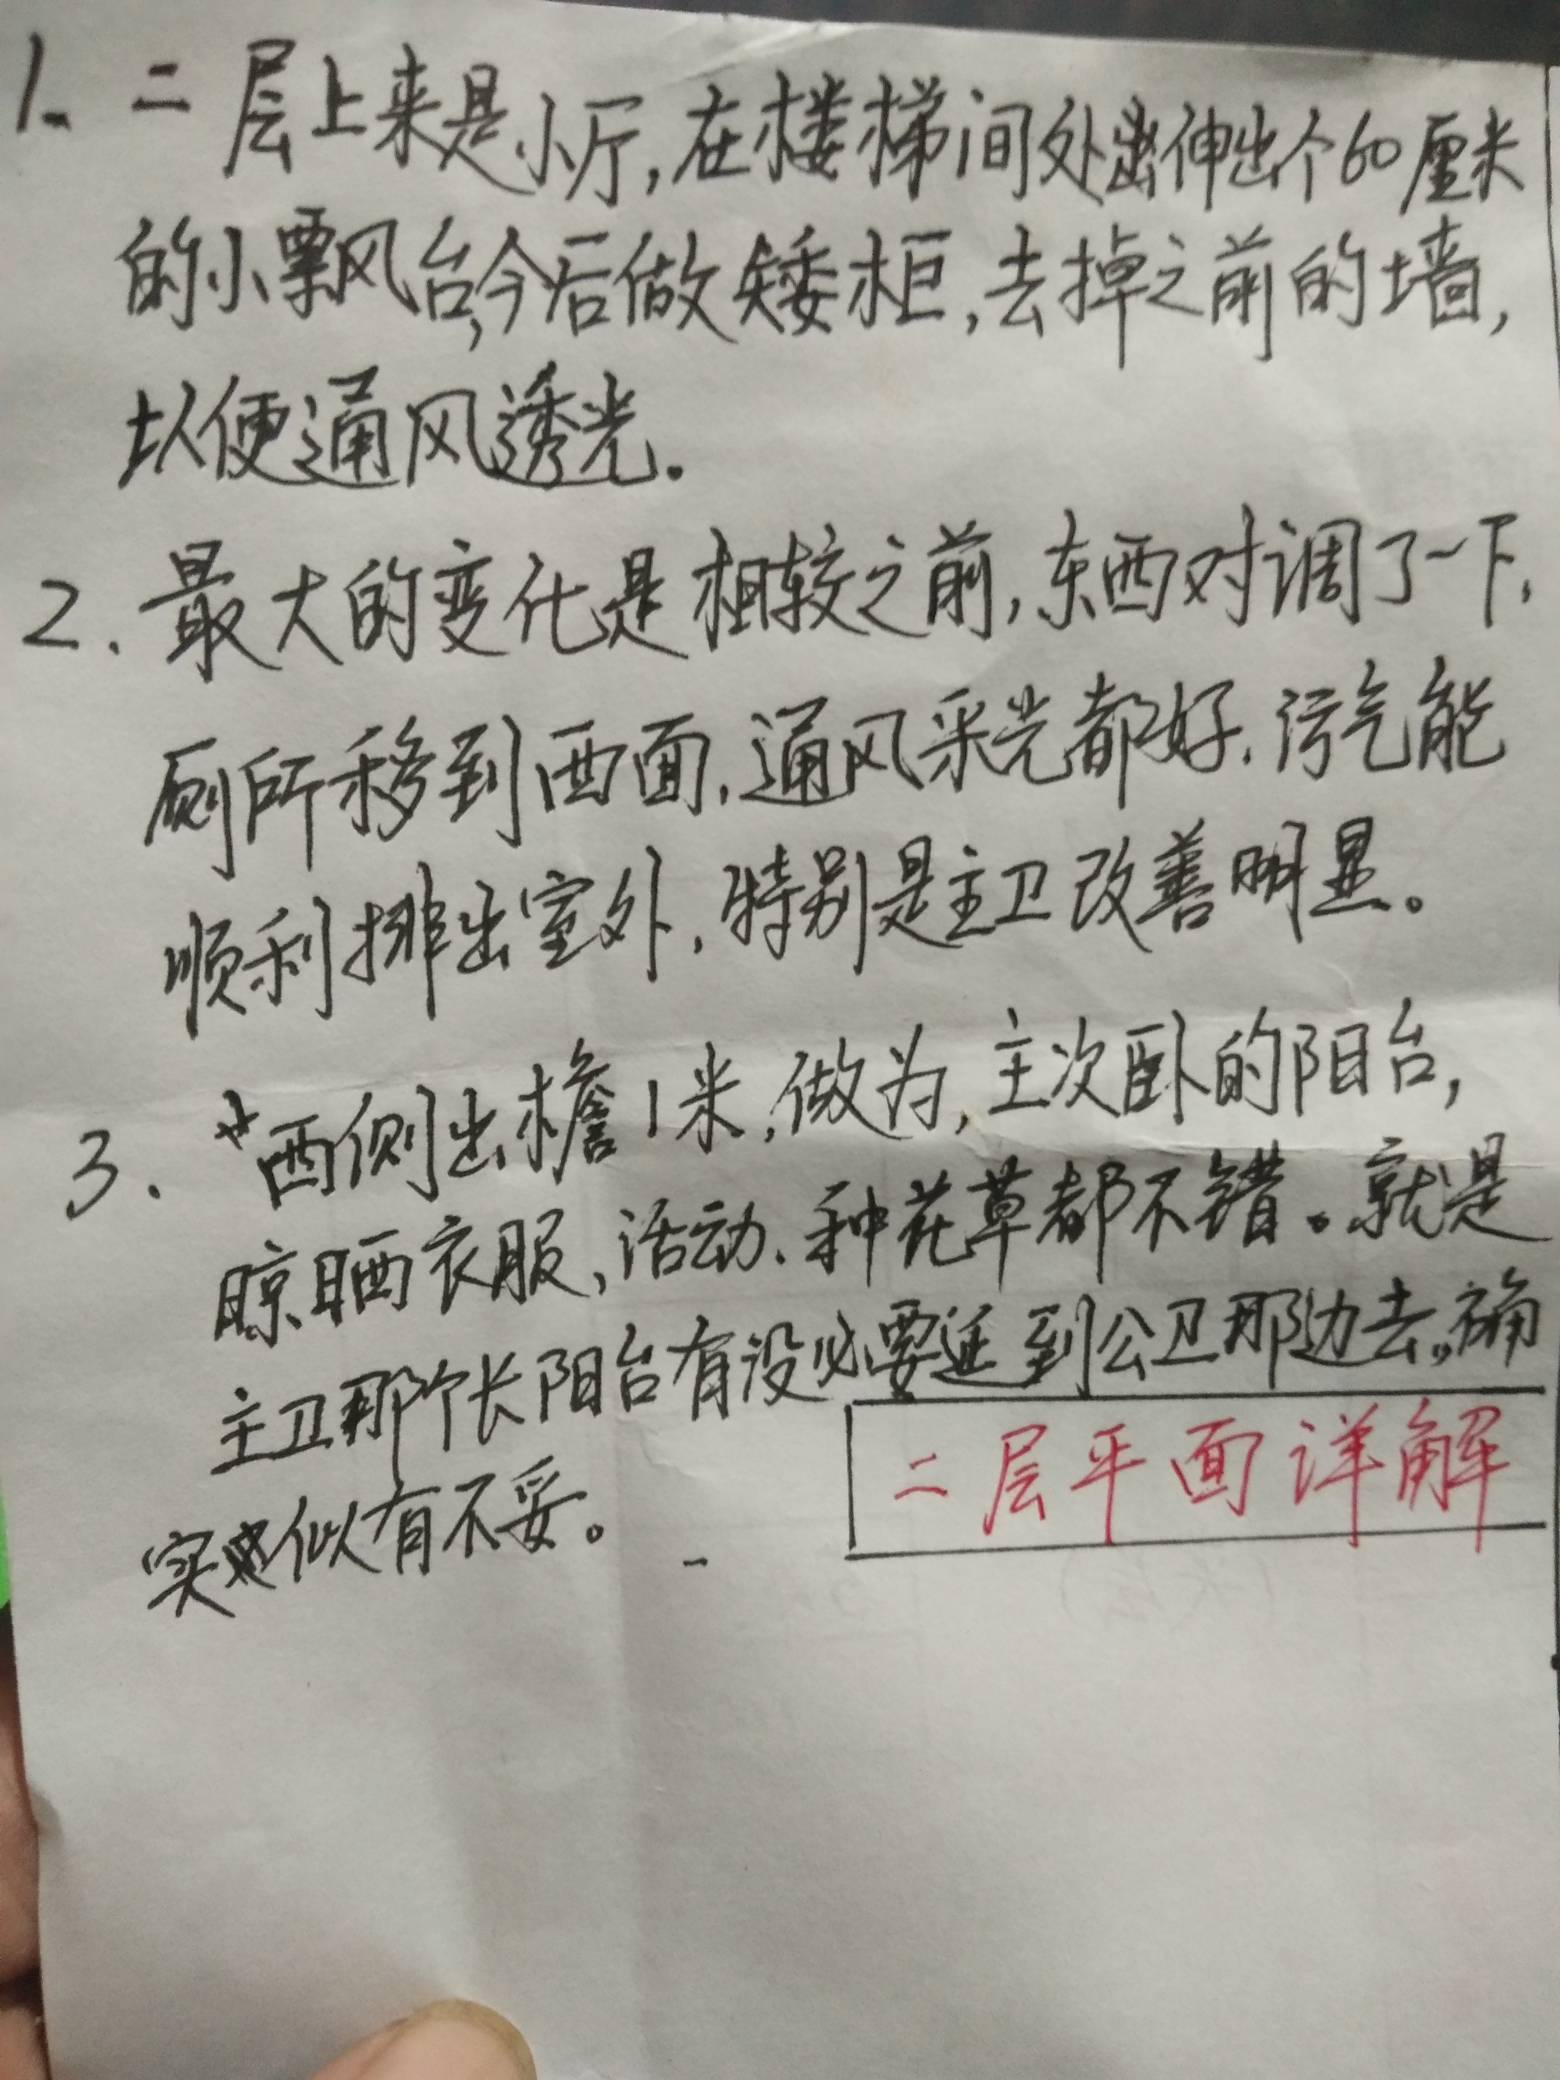 1、二层上来是小厅,在楼梯间处伸出个60厘米
的小飘风台,今后做矮柜,去掉之前的墙,
以便通风透光。
2.最大的变化是相较之前,东西对调了一下,
厕所移到西面,通风采光都好.污气能
顺利排出室外,特别是主卫改善明显。
3.西侧出檐1米,做为,主次卧的阳台,
晾晒衣服、活动、种花草都不错。就是
主卫那个长阳台有没必要延到公卫那边去。确
实似有不妥。
二层平面详解